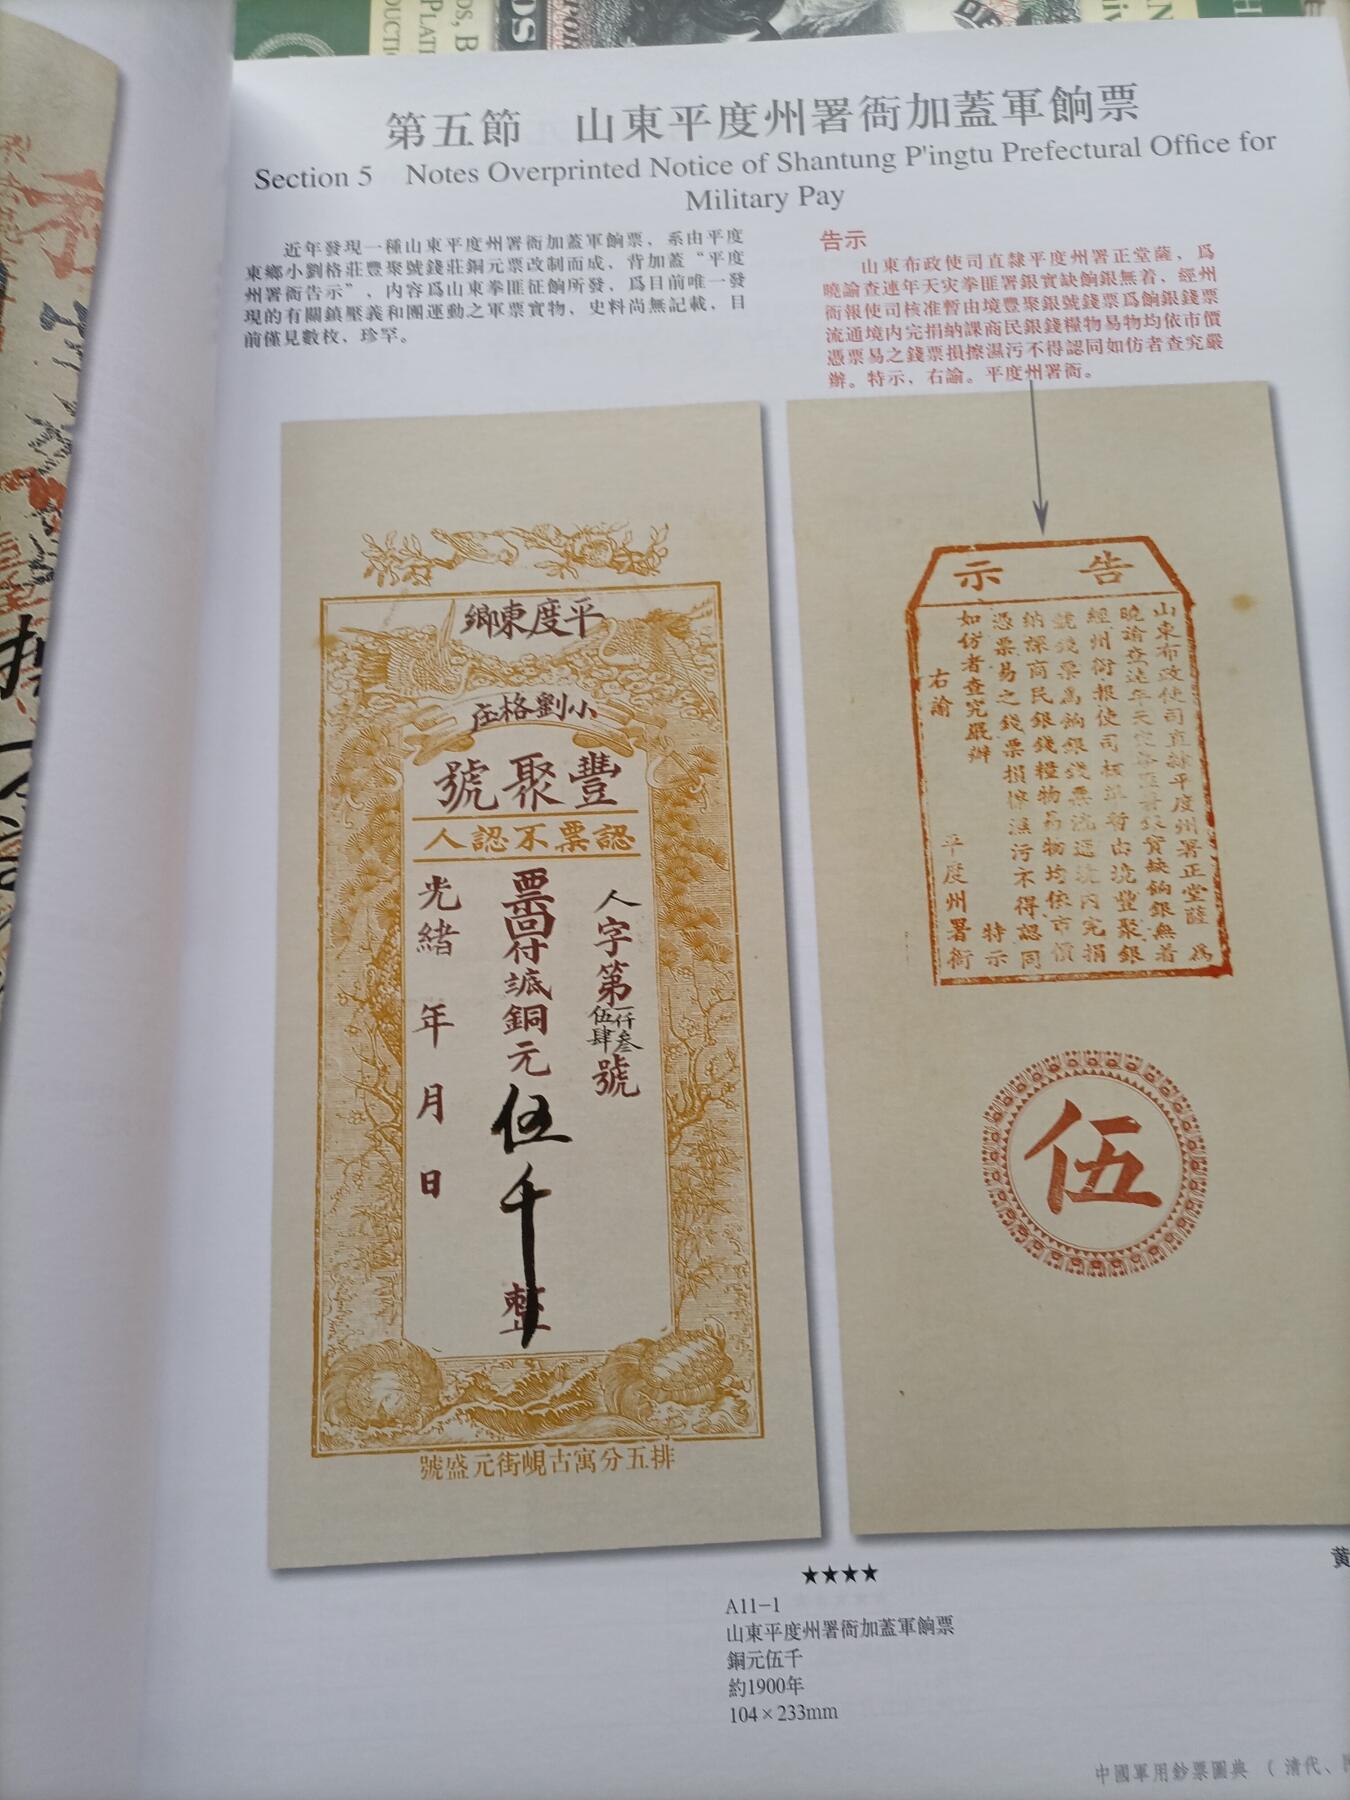 第五節　山東平度州署衙加蓋軍餉票
Section 5　Notes Overprinted Notice of Shantung P'ingtu Prefectural Office for
Military Pay
近年發現一種山東平度州署衙加蓋軍餉票，系由平度
東鄉小劉格莊豐聚號錢莊銅元票改制而成，背加蓋“平度
州署衙告示”，内容爲山東拳匪征餉所發，爲目前唯一發
現的有關鎮壓義和團運動之軍票實物，史料尚無記載，目
前僅見數枚，珍罕。
告示
山東布政使司直隸平度州署正堂薩，爲
曉諭查連年天灾拳匪署銀實缺餉銀無着，經州
衙報使司核准暫由境豐聚銀號錢票爲餉銀錢票
流通境内完捐納課商民銀錢糧物易物均依市價
憑票易之錢票損擦濕污不得認同如仿者查究嚴
辦。特示，右諭。平度州署衙。
平度東鄉
小劉格庄
豐聚號
認票不認人
人字第一仟叁伍肆號
票回付㡳銅元伍千整
光緒 年 月 日
排五分寓古峴街元盛號
告示
山東布政使司直隸平度州署正堂薩 爲
曉諭查連年天灾拳匪署銀實缺餉銀無着
經州衙報使司核准暫由境豐聚銀
號錢票爲餉銀錢票流通境内完捐
納課商民銀錢糧物易物均依市價
憑票易之錢票損擦濕污不得認同
如仿者查究嚴辦 特示
右諭 平度州署衙
伍
★★★★
A11-1
山東平度州署衙加蓋軍餉票
銅元伍千
約1900年
104×233mm
黄
中國軍用鈔票圖典 （ 清代、